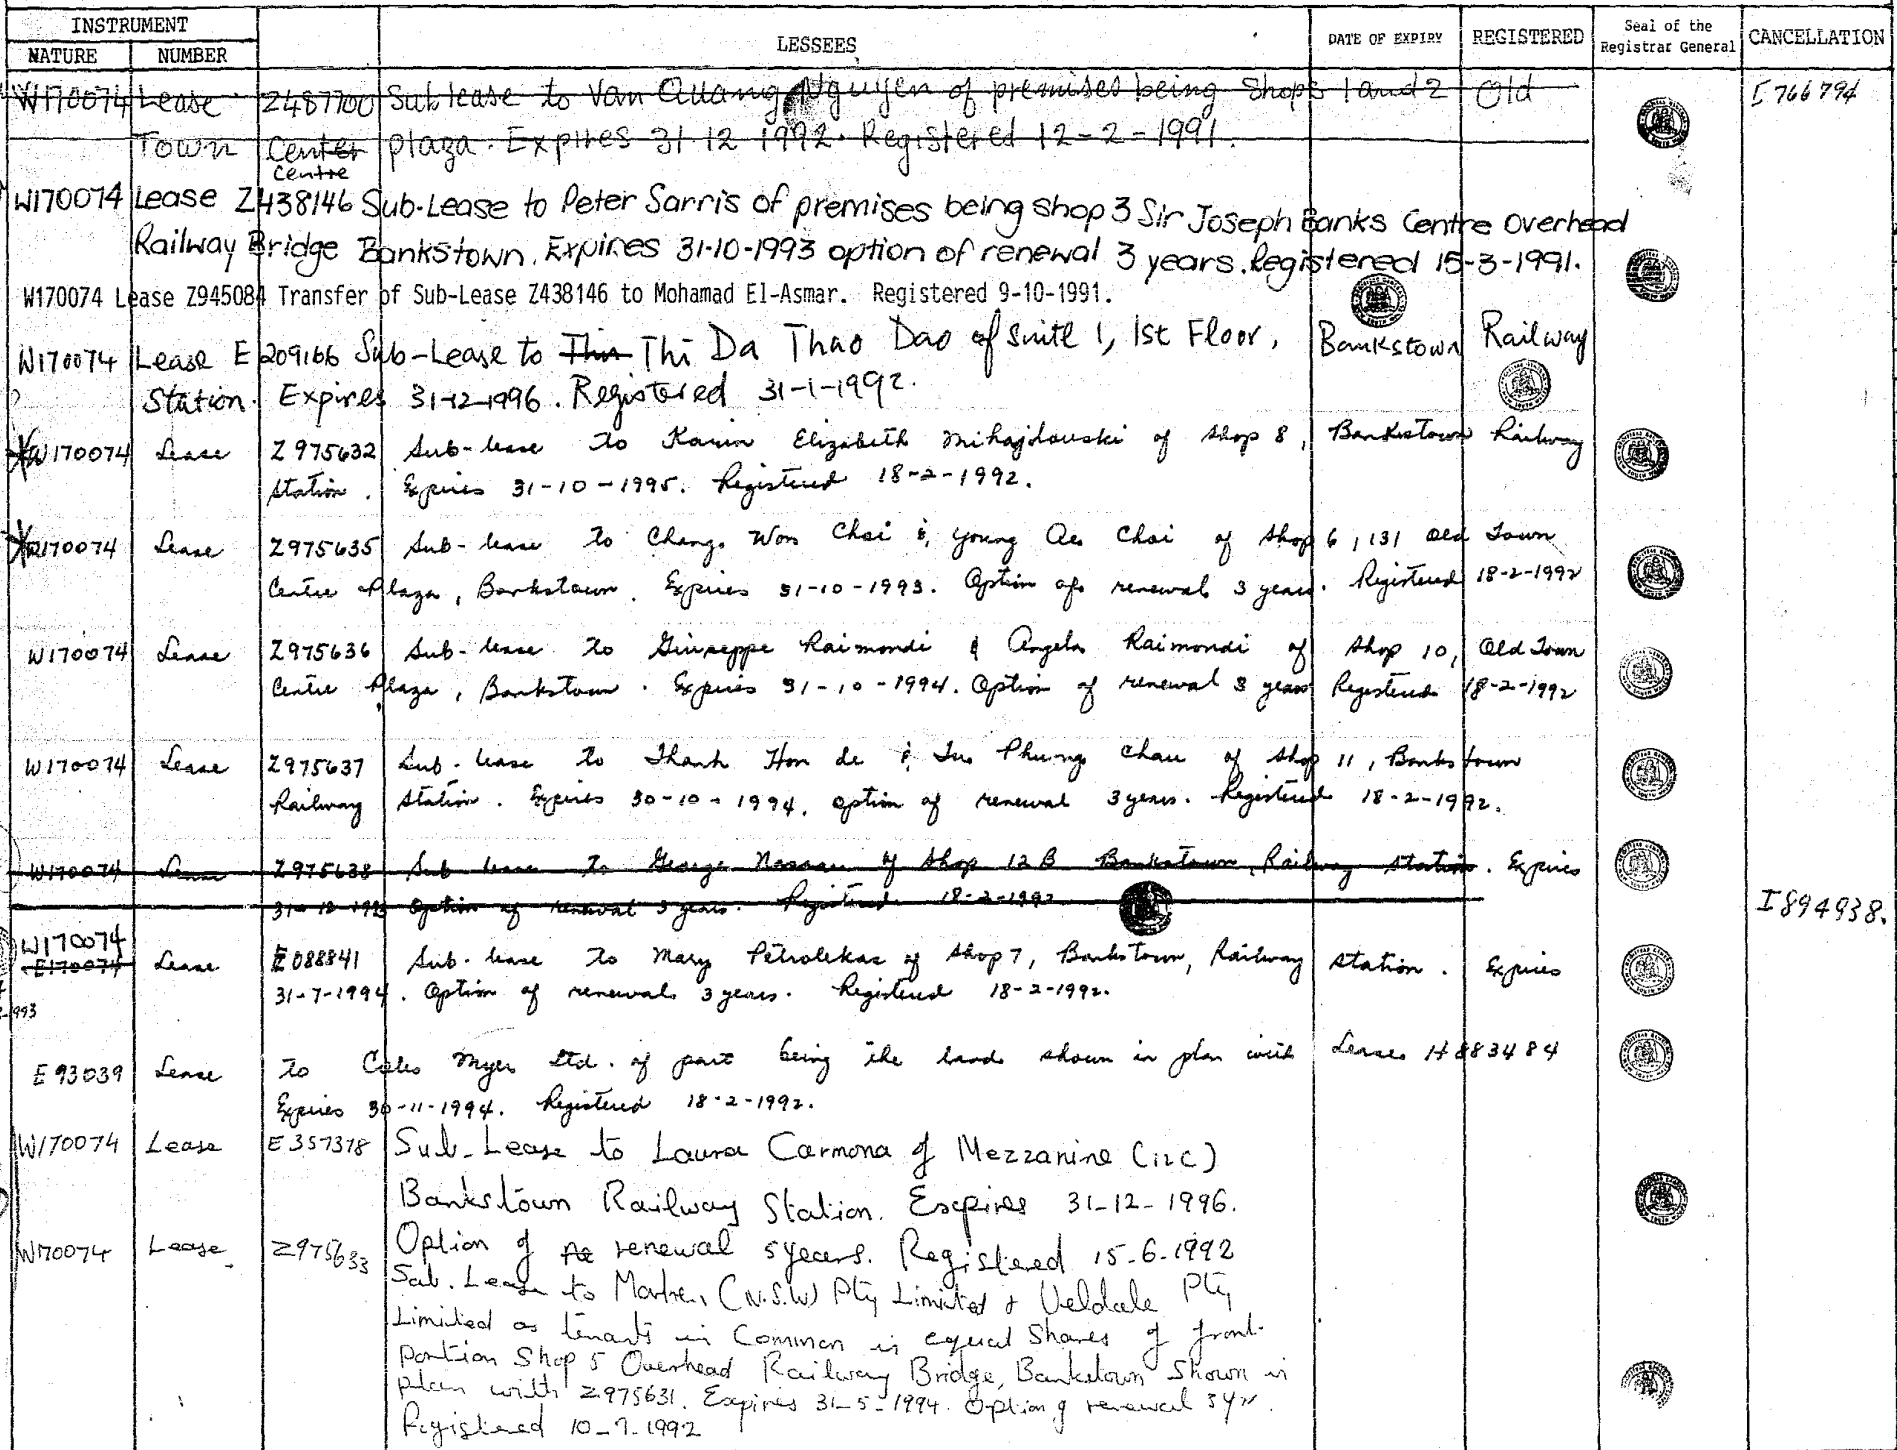 INSTRUMENT
NATURE NUMBER LESSEES DATE OF EXPIRY REGISTERED Seal of the Registrar General CANCELLATION
W170074 Lease Z487700 Sublease to Van Quang Nguyen of premises being Shops 1 and 2 Old I 766794
Town Center plaza. Expires 31 12 1992. Registered 12-2-1991.
Centre
W170074 Lease Z438146 Sub-Lease to Peter Sarris of premises being shop 3 Sir Joseph Banks Centre Overhead
Railway Bridge Bankstown. Expires 31-10-1993 option of renewal 3 years. Registered 15-3-1991.
W170074 Lease Z945084 Transfer of Sub-Lease Z438146 to Mohamad El-Asmar. Registered 9-10-1991.
W170074 Lease E209166 Sub-Lease to Thi Da Thao Dao of Suite 1, 1st Floor, Bankstown Railway
Station. Expires 31-12-1996. Registered 31-1-1992.
W170074 Lease Z975632 Sub-lease to Karin Elizabeth Mihajlouski of Shop 8, Bankstown Railway
Station. Expires 31-10-1995. Registered 18-2-1992.
W170074 Lease Z975635 Sub-lease to Chang Won Choi & Young Ae Choi of Shop 6, 131 Old Town
Centre Plaza, Bankstown. Expires 31-10-1993. Option of renewal 3 years. Registered 18-2-1992
W170074 Lease Z975636 Sub-lease to Giuseppe Raimondi & Angela Raimondi of Shop 10, Old Town
Centre Plaza, Bankstown. Expires 31-10-1994. Option of renewal 3 years Registered 18-2-1992
W170074 Lease Z975637 Sub-lease to Thanh Hon de & Phung Chau of Shop 11, Bankstown
Railway Station. Expires 30-10-1994. option of renewal 3 years. Registered 18-2-1992.
W170074 Lease Z975638 Sub lease to George of Shop 12B Bankstown, Railway Station. Expires
31-12-1993 Option of renewal 3 years. Registered 18-2-1992 I894938.
W170074
E170074 Lease E088841 Sub-lease to Mary Petrolekas of Shop 7, Bankstown, Railway Station. Expires
31-7-1994. Option of renewal 3 years. Registered 18-2-1992.
993
E93039 Lease to Coles Myer Ltd. of part being the land shown in plan with Lease H883484
Expires 30-11-1994. Registered 18-2-1992.
W170074 Lease E357378 Sub-Lease to Laura Carmona of Mezzanine (12C)
Bankstown Railway Station. Expires 31-12-1996.
Option of renewal 5 years. Registered 15-6-1992
W170074 Lease Z975633 Sub. Lease to (N.S.W) Pty Limited & Veldale Pty
Limited as tenants in Common in equal Shares of front
portion Shop 5 Overhead Railway Bridge, Bankstown Shown in
plan with Z975631. Expires 31-5-1994. Option of renewal 3 yr.
Registered 10-7-1992